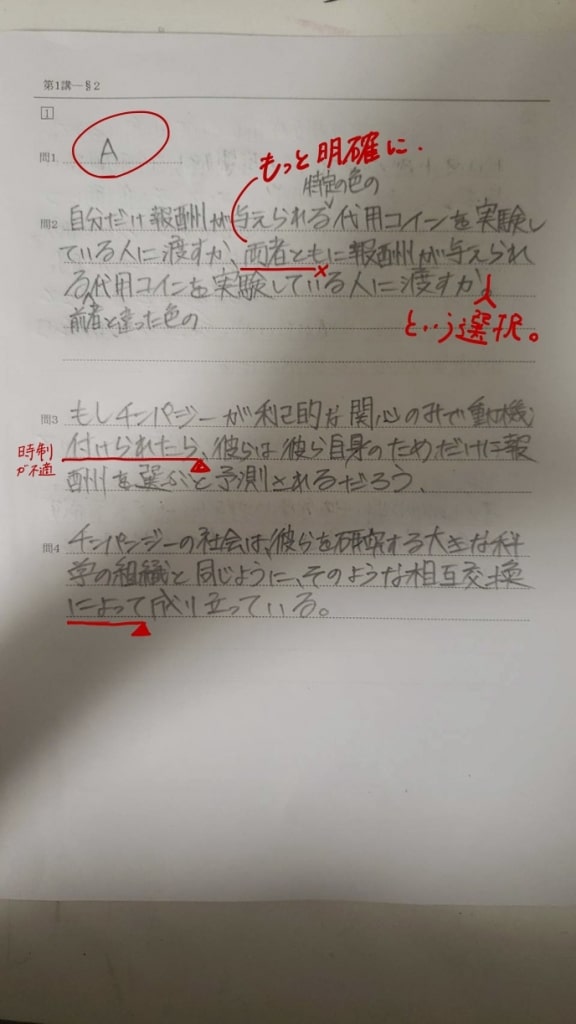 第1講—§2
1
問1 A
もっと明確に.
特定の色の
問2 自分だけ報酬が与えられる代用コインを実験し
ている人に渡すか、両者ともに報酬が与えられ
る代用コインを実験している人に渡すか。
前者と違った色の
という選択。
問3 もしチンパンジーが利己的な関心のみで動機
時制が不適
付けられたら、彼らは彼ら自身のためだけに報
酬を選ぶと予測されるだろう.
問4 チンパンジーの社会は、彼らを研究する大きな科
学の組織と同じように、そのような相互交換
によって成り立っている。